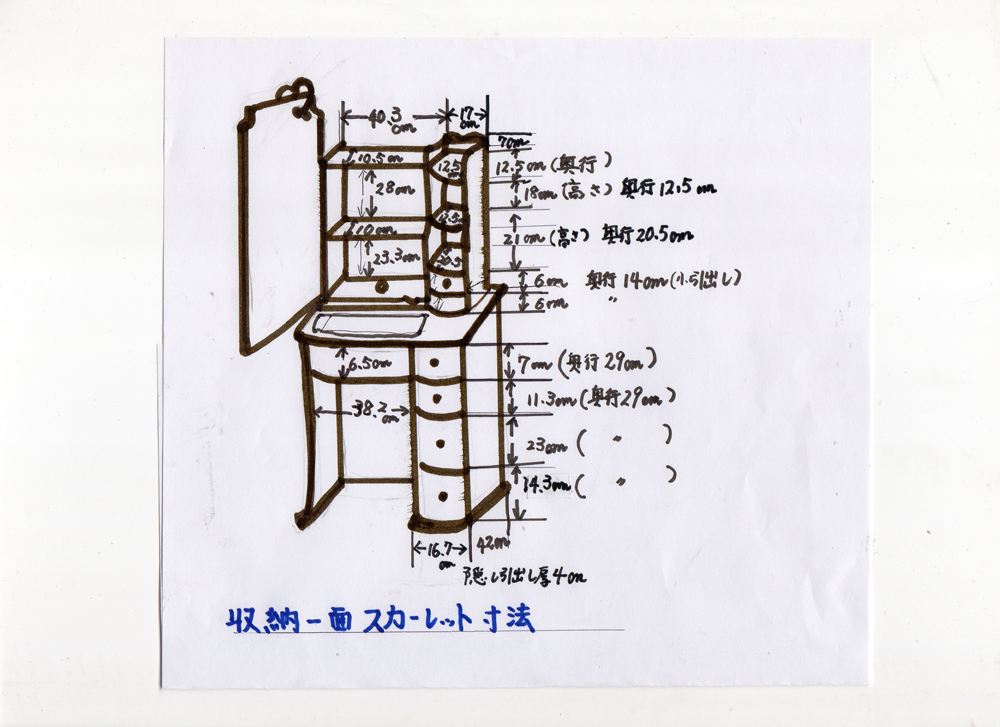 40.3cm
17cm
7cm
10.5cm
12.5cm
12.5cm (奥行)
28cm
18cm (高さ) 奥行12.5cm
10cm
21cm (高さ) 奥行20.5cm
23.3cm
20.5
6cm 奥行14cm(小引出し)
6cm 〃
6.5cm
7cm (奥行29cm)
38.2cm
11.3cm (奥行29cm)
23cm ( 〃 )
14.3cm ( 〃 )
16.7cm
42cm
隠し引出し厚4cm
収納一面 スカーレット寸法